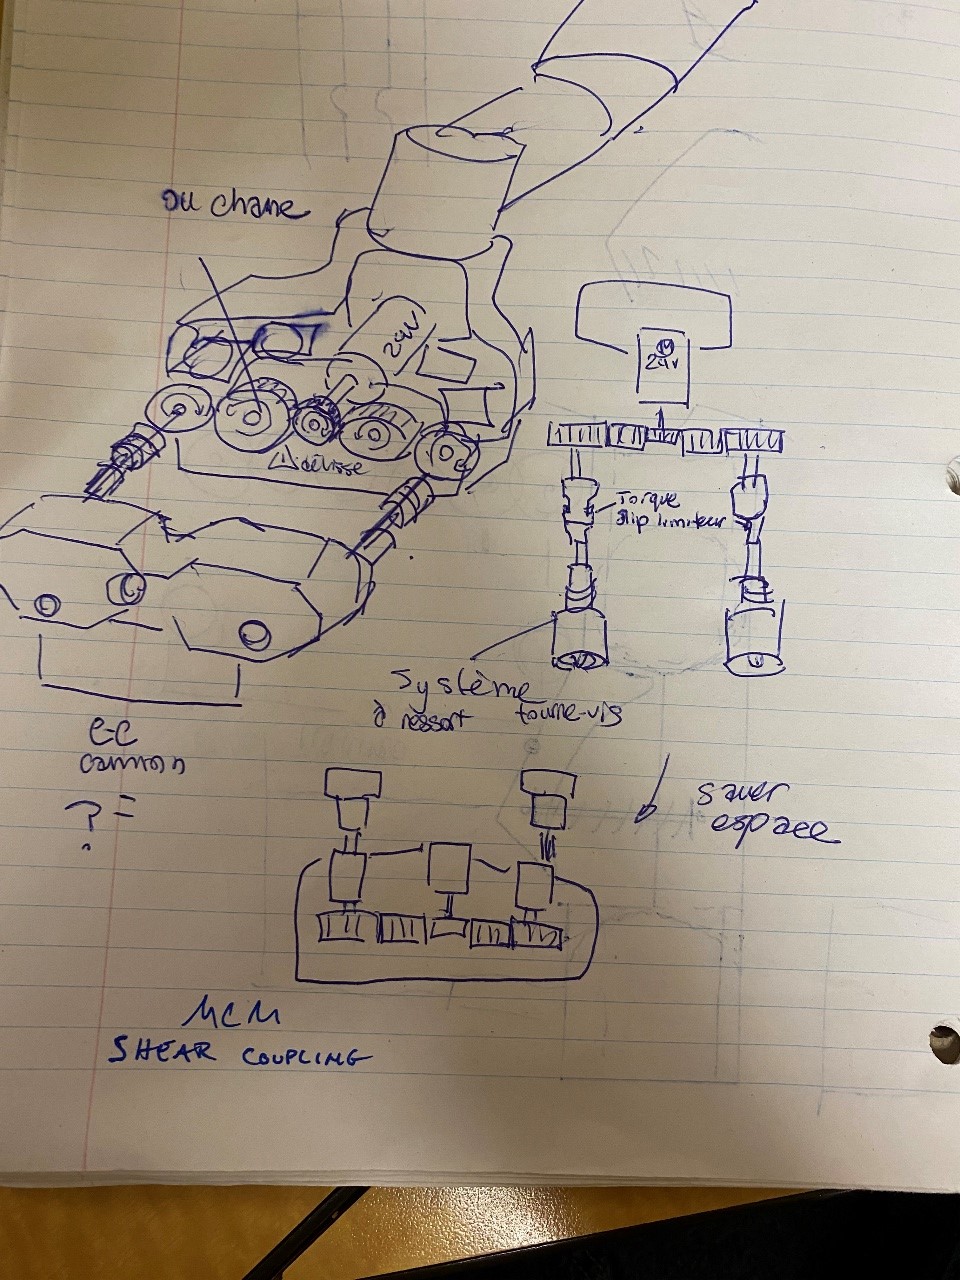 ou chaine
24V
délisse
M
24v
Torque
slip limiteur
Système
à ressort tourne-vis
sauver
espace
C-C
common
? =
MCM
SHEAR COUPLING